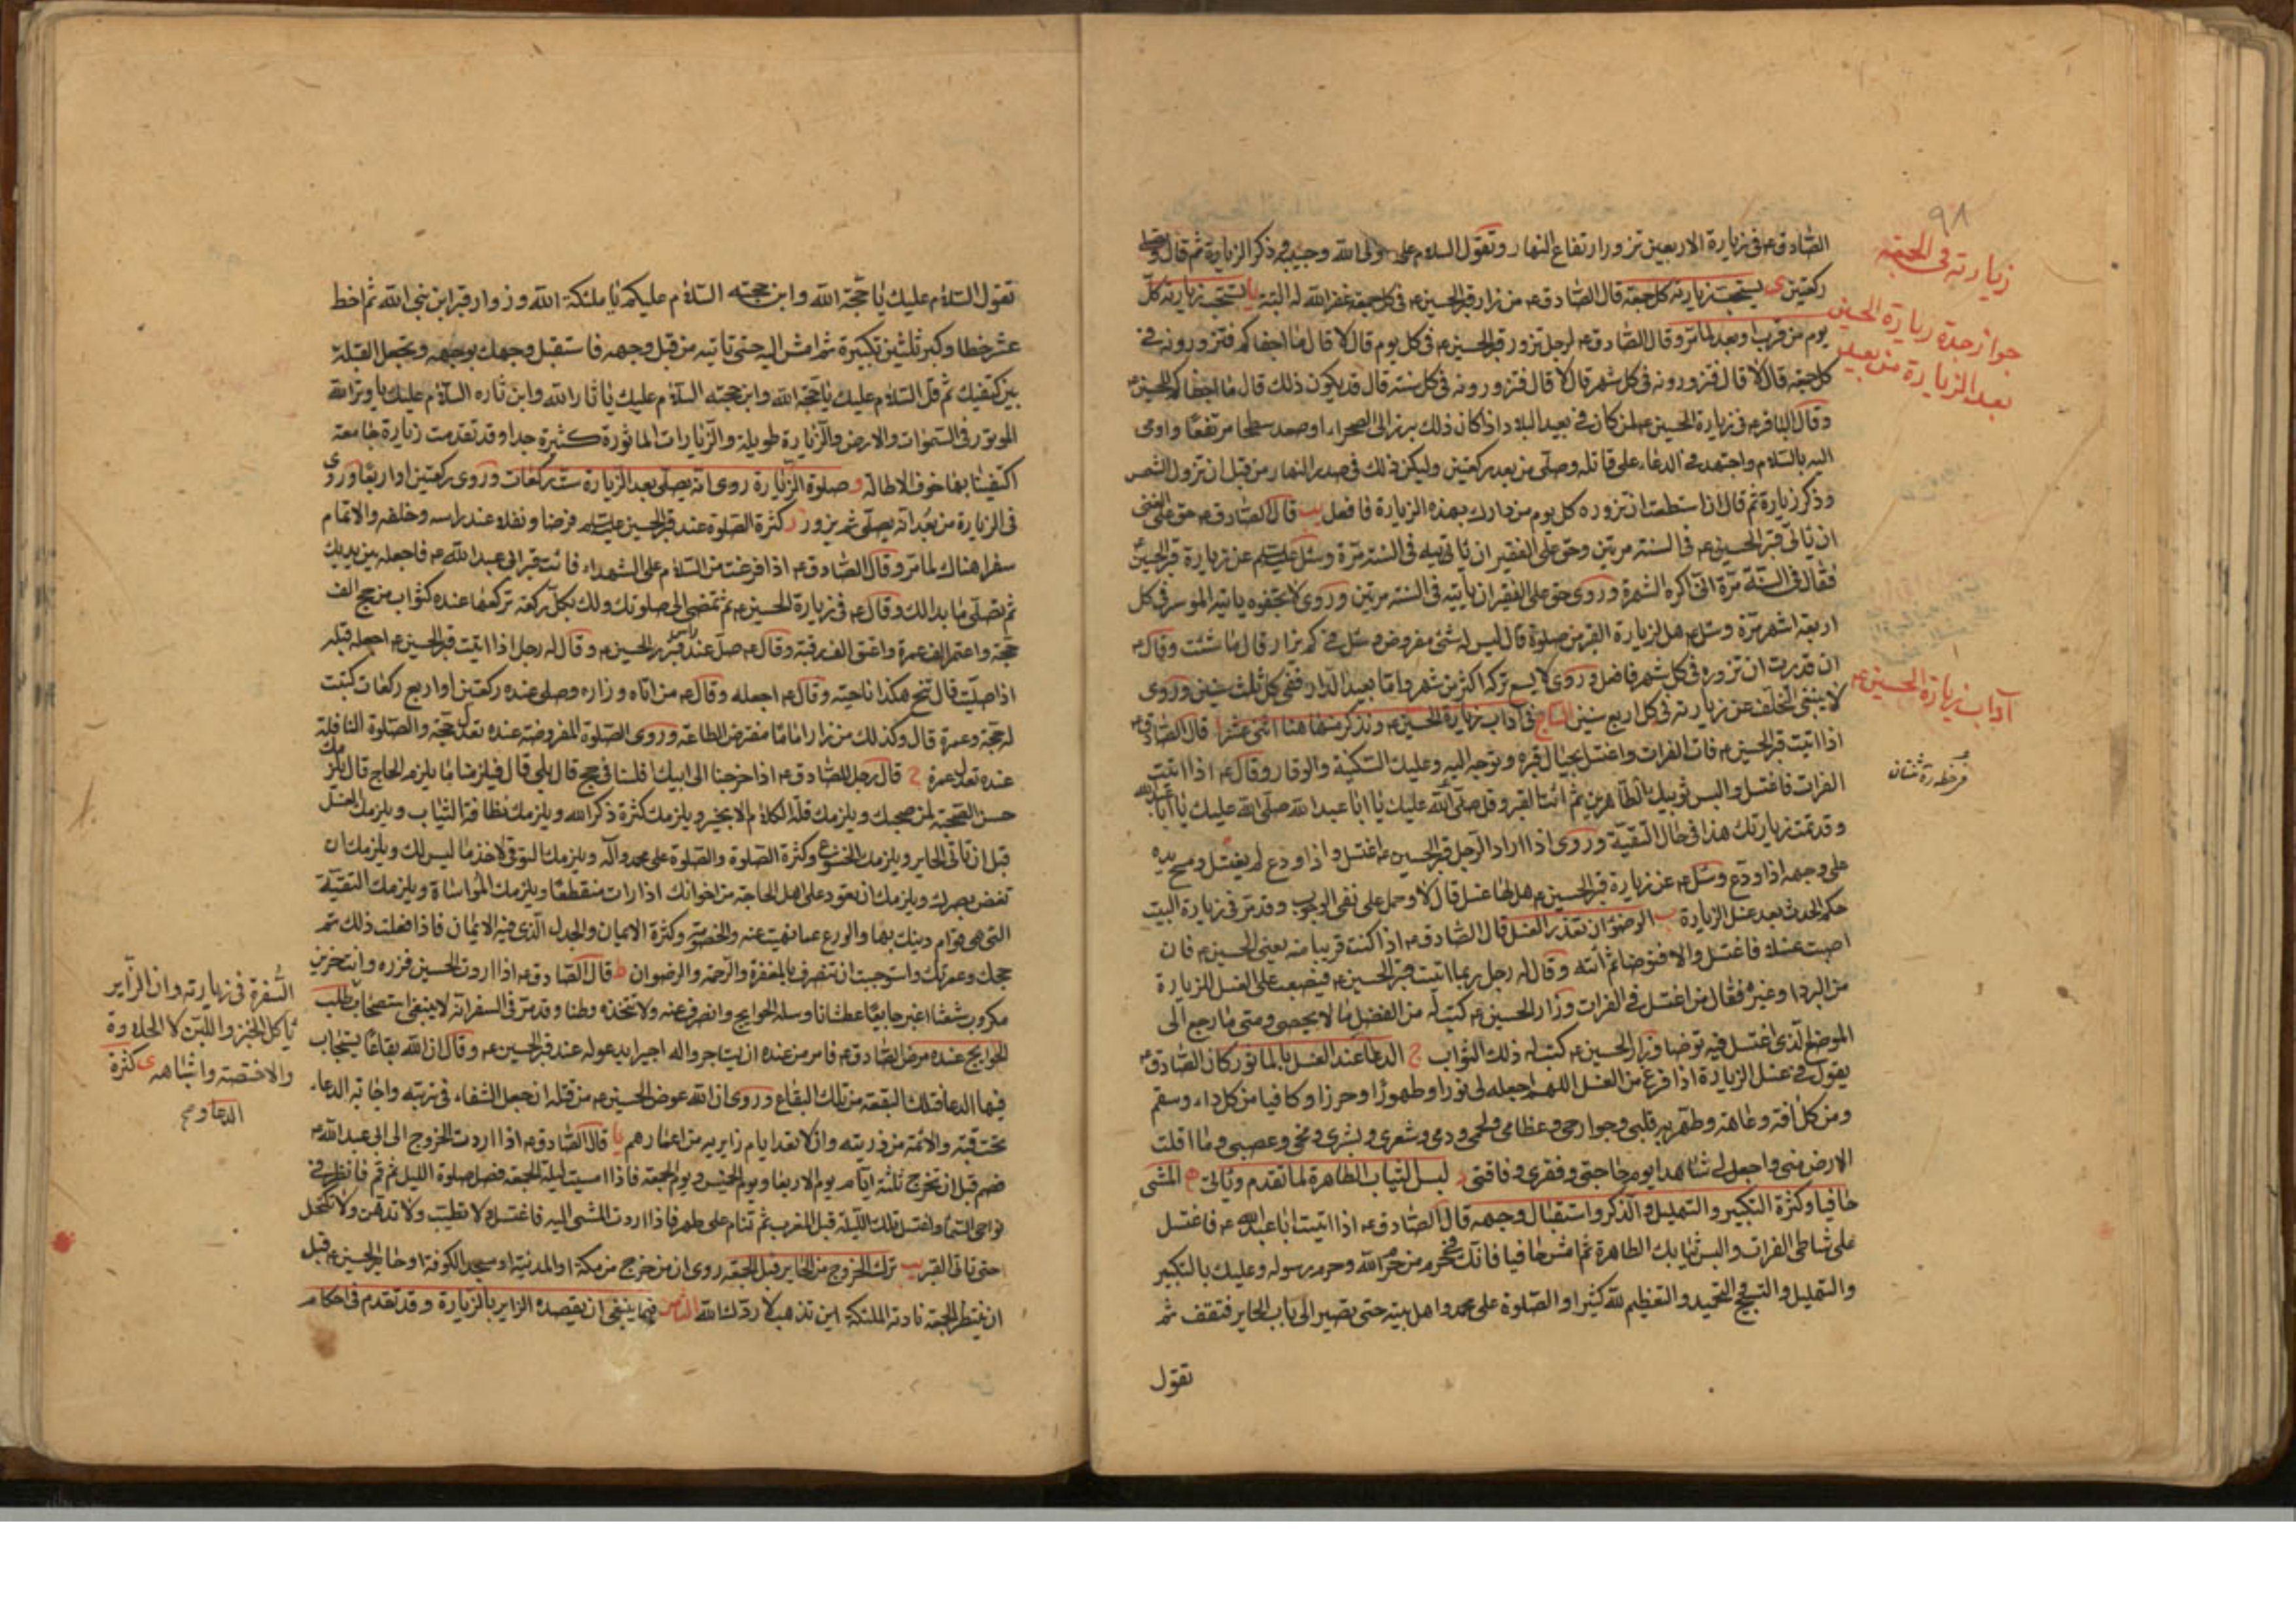 ٩٨
زيارته فى الجمعة
جواز جدة زيارة الحسين
بعد الزيارة من بعيد
الصادق ع فى زيارة الاربعين تزور ارتفاع النهار وتقول السلام على ولى الله وحبيبه وذكر الزيارة ثم قال وتصلى
ركعتين ى يستحب زيارته كل جمعة قال الصادق ع من زار قبر الحسين ع فى كل جمعة غفر الله له البتة يا يستحب زيارته كل
يوم من قرب وبعد لما مر وقال الصادق ع لرجل تزور قبر الحسين ع فى كل يوم قال لا قال ما اجفاكم فتزورونه فى
كل جمعة قال لا قال فتزورونه فى كل شهر قال لا قال فتزورونه فى كل سنة قال قد يكون ذلك قال ما اجفاكم للحسين ع
وقال الباقر ع فى زيارة الحسين ع لمن كان فى بعيد البلاد اذا كان ذلك برز الى الصحراء او صعد سطحا مرتفعا واومى
اليه بالسلام واجتهد فى الدعاء على قاتله وصلى من بعد ركعتين وليكن ذلك فى صدر النهار من قبل ان تزول الشمس
وذكر زيارة ثم قال ان استطعت ان تزوره كل يوم من دارك بهذه الزيارة فافعل يب قال الصادق ع حق على الغنى
ان ياتى قبر الحسين ع فى السنة مرتين وحق على الفقير ان ياتيه فى السنة مرة وسئل عليه السلم عن زيارة قبر الحسين ع
فقال فى السنة مرة انى اكره الشهرة وروى حق على الفقير ان ياتيه فى السنة مرتين وروى لا تجفوه ياتيه الموسر فى كل
اربعة اشهر مرة وسئل ع هل لزيارة القبر من صلوة قال ليس له شئ مفروض وسئل فى كم يزار قال ما شئت وقال ع
ان قدرت ان تزوره فى كل شهر فافضل وروى لا يسع تركه اكثر من شهر واما بعيد الدار ففى كل ثلث سنين وروى
لا ينبغى التخلف عن زيارته فى كل اربع سنين السابع فى آداب زيارة الحسين ع ونذكر منها هنا اثنى عشر ا قال الصادق ع
آداب زيارة الحسين ع
اذا اتيت قبر الحسين ع فات الفرات واغتسل بحيال قبره وتوجه اليه وعليك السكينة والوقار وقال ع اذا اتيت
الفرات فاغتسل والبس ثوبيك الطاهرين ثم ائت القبر وقل صلى الله عليك يا ابا عبد الله صلى الله عليك يا ابا عبد الله
وقد تمت زيارتك هذا فى حال التقية وروى اذا اراد الرجل قبر الحسين ع اغتسل واذا ودع لم يغتسل ومسح يده
على وجهه اذا ودع وسئل ع عن زيارة قبر الحسين ع هل لها غسل قال لا وحمل على نفى الوجوب وقد مر فى زيارة البيت
حكم الحدث بعد غسل الزيارة ب الوضوء ان تعذر الغسل قال الصادق ع اذا كنت قريبا منه يعنى الحسين ع فان
اصبت غسلا فاغتسل والا فتوضا ثم أته وقال له رجل ربما اتيت قبر الحسين ع فيصعب على الغسل للزيارة
من البرد او غيره فقال من اغتسل فى الفرات وزار الحسين ع كتب له من الفضل ما لا يحصى ومتى ما رجع الى
الموضع الذى اغتسل فيه توضا وزار الحسين ع كتب له ذلك الثواب ج الدعا عند الغسل بالماثور كان الصادق ع
يقول فى غسل الزيارة اذا فرغ من الغسل اللهم اجعله لى نورا وطهورا وحرزا وكافيا من كل داء وسقم
ومن كل افة وعاهة وطهر به قلبى وجوارحى وعظامى ولحمى ودمى وشعرى وبشرى ومخى وعصبى وما اقلت
الارض منى واجعل لى شاهدا يوم حاجتى وفقرى وفاقتى د لبس الثياب الطاهرة لما تقدم وياتى ه المشى
حافيا وكثرة التكبير والتهليل والذكر واستقبال وجهه قال الصادق ع اذا اتيت ابا عبد الله ع فاغتسل
على شاطى الفرات والبس ثيابك الطاهرة ثم امش حافيا فانك فى حرم من حرم الله وحرم رسوله وعليك بالتكبير
والتهليل والتسبيح والتحميد والتعظيم لله كثيرا والصلوة على محمد واهل بيته حتى تصير الى باب الحاير فتقف ثم
تقول
تقول السلام عليك يا حجة الله وابن حجته السلام عليكم يا ملئكة الله وزوار قبر ابن نبى الله ثم اخط
عشر خطا وكبر ثلثين تكبيرة ثم امش اليه حتى تاتيه من قبل وجهه فاستقبل وجهك بوجهه وتجعل القبلة
بين كتفيك ثم قل السلام عليك يا حجة الله وابن حجته السلام عليك يا ثار الله وابن ثاره السلام عليك يا وتر الله
الموتور فى السموات والارض والزيارة طويلة والزيارات الماثورة كثيرة جدا وقد تقدمت زيارة جامعة
اكتفينا بها خوف الاطالة و صلوة الزيارة روى انه يصلى بعد الزيارة ست ركعات وروى ركعتين او اربعا وروى
فى الزيارة من بعد انه يصلى ثم يزور ز كثرة الصلوة عند قبر الحسين عليه السلم فرضا ونفلا عند راسه وخلفه والاتمام
سفرا هناك لما مر وقال الصادق ع اذا فرغت من السلام على الشهداء فائت قبر ابى عبد الله ع فاجعله بين يديك
ثم تصلى ما بدا لك وقال ع فى زيارة الحسين ع ثم تمضى الى صلوتك ولك بكل ركعة تركعها عنده كثواب من حج الف
حجة واعتمر الف عمرة واعتق الف رقبة وقال ع صل عند راس قبر الحسين ع وقال له رجل اذا اتيت قبر الحسين ع اجعله قبلة
اذا صليت قال تنح هكذا ناحية وقال ع اجعله وقال ع من اتاه وزاره وصلى عنده ركعتين او اربع ركعات كتبت
له حجة وعمرة قال وكذلك من زار اماما مفترض الطاعة وروى الصلوة المفروضة عنده تعدل حجة والصلوة النافلة
عنده تعدل عمرة ح قال رجل للصادق ع اذا خرجنا الى ابيك افلسنا فى حج قال بلى قال فيلزمنا ما يلزم الحاج قال يلزمك
حسن الصحبة لمن صحبك ويلزمك قلة الكلام الا بخير ويلزمك كثرة ذكر الله ويلزمك نظافة الثياب ويلزمك الغسل
قبل ان تاتى الحاير ويلزمك الخشوع وكثرة الصلوة والصلوة على محمد وآله ويلزمك التوقى لاخذ ما ليس لك ويلزمك ان
تغض بصرك ويلزمك ان تعود على اهل الحاجة من اخوانك اذا رايت منقطعا ويلزمك المواساة ويلزمك التقية
التى هى قوام دينك بها والورع عما نهيت عنه والخصومة وكثرة الايمان والجدل الذى فيه الايمان فاذا فعلت ذلك تم
حجك وعمرتك واستوجبت ان تنصرف بالمغفرة والرحمة والرضوان ط قال الصادق ع اذا اردت الحسين فزره وانت حزين
مكروب شعثا اغبر جايعا عطشانا وسله الحوايج وانصرف عنه ولا تتخذه وطنا وقد مر فى السفر انه لا ينبغى استصحاب طلب
السفرة فى زيارته وان الزاير
ياكل الخبز واللبن لا الحلاوة
والاخبصة واشباهه ى كثرة
الدعا و صح
الحوايج عنده مرض الصادق ع فامر من عنده ان يستاجروا له اجيرا يدعو له عند قبر الحسين ع وقال ان الله بقاعا يستجاب
فيها الدعا فتلك البقعة من تلك البقاع وروى ان الله عوض الحسين ع من قتله ان جعل الشفاء فى تربته واجابة الدعاء
تحت قبته والائمة من ذريته وان لا تعد ايام زايريه من اعمارهم يا قال الصادق ع اذا اردت الخروج الى ابى عبد الله ع
فصم قبل ان تخرج ثلثة ايام يوم الاربعا ويوم الخميس ويوم الجمعة فاذا امسيت ليلة الجمعة فصل صلوة الليل ثم قم فانظر فى
نواحى السماء واغتسل تلك الليلة قبل المغرب ثم تنام على طهر فاذا اردت المشى اليه فاغتسل ولا تطيب ولا تدهن ولا تكتحل
حتى تاتى القبر يب ترك الخروج من الحاير قبل الجمعة روى ان من خرج من مكة او المدينة او مسجد الكوفة او حاير الحسين ع قبل
ان ينتظر الجمعة نادته الملئكة اين تذهب لا ردك الله الثامن فيما ينبغى ان يقصده الزاير بالزيارة وقد تقدم فى احكام